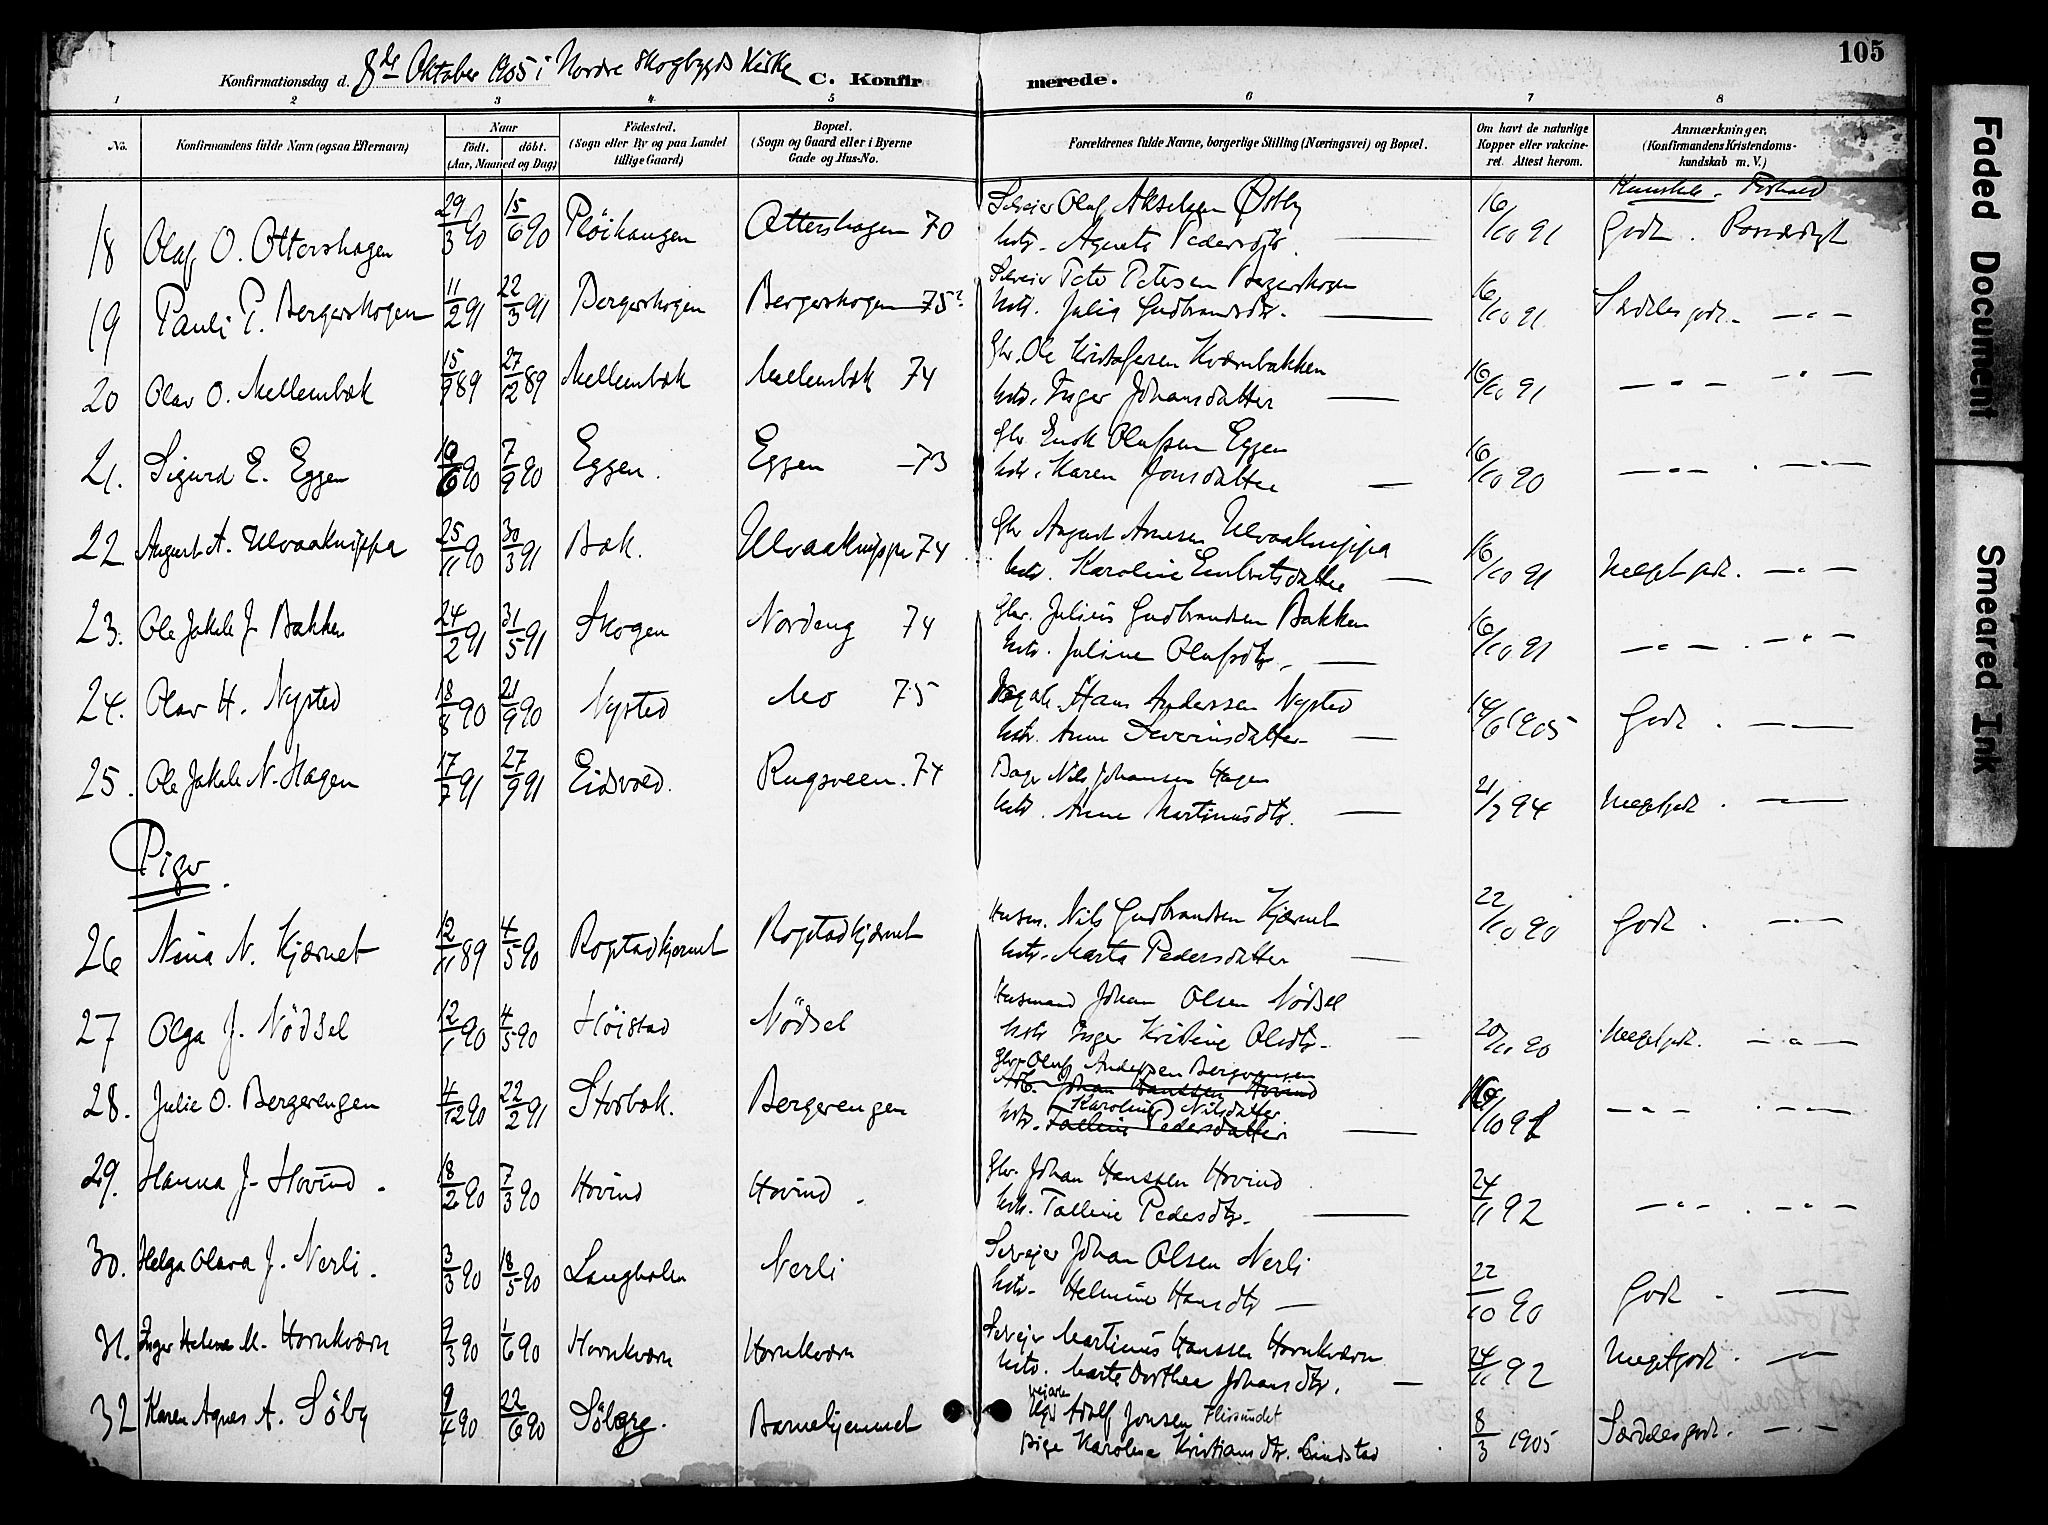 105
Konfirmationsdag d. 8de Oktober 1905 i Nordre Skogbygds Kirke C. Konfirmerede.
1 2 3 4 5 6 7 8
No. Konfirmandens fulde Navn (ogsaa Efternavn) Naar født. døbt. (Aar, Maaned og Dag) Fødested. (Sogn eller By og paa Landet tillige Gaard) Bopæl. (Sogn og Gaard eller i Byerne Gade og Hus-No. Forældrenes fulde Navne, borgerlige Stilling (Næringsvei) og Bopæl. Om havt de naturlige Kopper eller vakcineret. Attest herom. Anmærkninger. (Konfirmandens Kristendomskundskab m. V.)
Kundsk. Forhold
18 Olaf O. Ottershagen 29/3 90 15/6 90 Pløihaugen Ottershagen 70 Selveier Olaf Akselsen Østby 16/10 91 Godt. Roværdigt
hstr. Agnete Pedersdtr. —
19 Pauli P. Bergerskogen 11/2 91 22/3 91 Bergerskogen Bergerskogen 75? Selveier Petersen Bergerskogen 16/10 91 Særdeles godt. — " —
hstr. Julia Gudbrandsdtr. —
20 Olav O. Mellembæk 15/9 89 27/12 89 Mellembæk Mellembæk 74 Gbr. Ole Kristofersen Kværnbakken 16/10 91 — " — — " —
hstr. Inger Johansdatter —
21. Sigurd E. Eggen 6 90 7/9 90 Eggen. Eggen — 73 Gbr Olafsen Eggen 16/10 90 — " — . — " —
hstr. Karen Jonsdatter —
22 August A. Ulvaaknippa 25/11 90 30/3 91 Bæk. Ulvaaknippa 74 Gbr August Arnesen Ulvaaknippa 16/10 91 Meget godt. — " —
hstr. Karoline Embretsdatter —
23. Ole Jakob J. Bakken 24/2 91 31/5 91 Skogen Nordeng 74 Gbr. Julius Gudbrandsen Bakken 16/10 91 — " — . — " —
hstr. Juline Olafsdtr. —
24. Olav H. Nysted 18/8 90 21/9 90 Nysted Mo 75 Hans Andersen Nysted 14/6 1905 Godt . — " —
hstr. Anne Severinsdatter —
25. Ole Jakob N. Hagen 17/7 91 27/9 91 Eidsvold. Rugsveen. 74 Nils Johansen Hagen 21/7 94 Meget godt . — " —
hstr. Anne Martinusdtr. —
Piger.
26 Nina N. Kjærnet 12/11 89 4/5 90 Rogstadkjærnet Rogstadkjærnet Husm. Nils Gudbrandsen Kjærnet 22/10 90 Godt . — " —
hstr. Marta Pedersdatter —
27 Olga J. Nødsel 12/1 90 4/5 90 Høistad Nødsel Husmand Johan Olsen Nødsel 20/10 90 Meget godt. — " —
hstr Inger Kristine Olsdtr. —
28. Julie O. Bergerengen 4/12 90 22/2 91 Storbæk. Bergerengen Gbr. Oluf Andersen Bergerengen 16/10 91 — " — . — " —
Johan Hanssen Hovind
Karoline Nilsdatter
hstr. Talline Pedersdatter —
29. Hanna J. Hovind. 18/2 90 7/3 90 Hovind Hovind . Gbr. Johan Hanssen Hovind 24/11 92 — " — . — " —
hstr. Talline Pedersdtr. —
30. Helga Olava J. Nerli. 3/3 90 18/5 90 Langholen Nerli Selveier Johan Olsen Nerli 22/10 90 Godt . — " —
hstr. Helmine Hansdtr —
31. Inger Helene M. Hornkværn 9/3 90 1/6 90 Hornkværn Hornkværn Selveier Martinus Hanssen Hornkværn 24/11 92 Meget godt . — " —
hstr. Marte Dorthea Johansdtr. —
32 Karen Agnes A. Søby 9/4 90 22/6 90 Barnehjemmet Adolf Jonsen Flisundet 8/3 1905 Særdeles godt. — " —
Pige Karoline Kristiansdtr. Lindstad
Faded Document
Smeared Ink